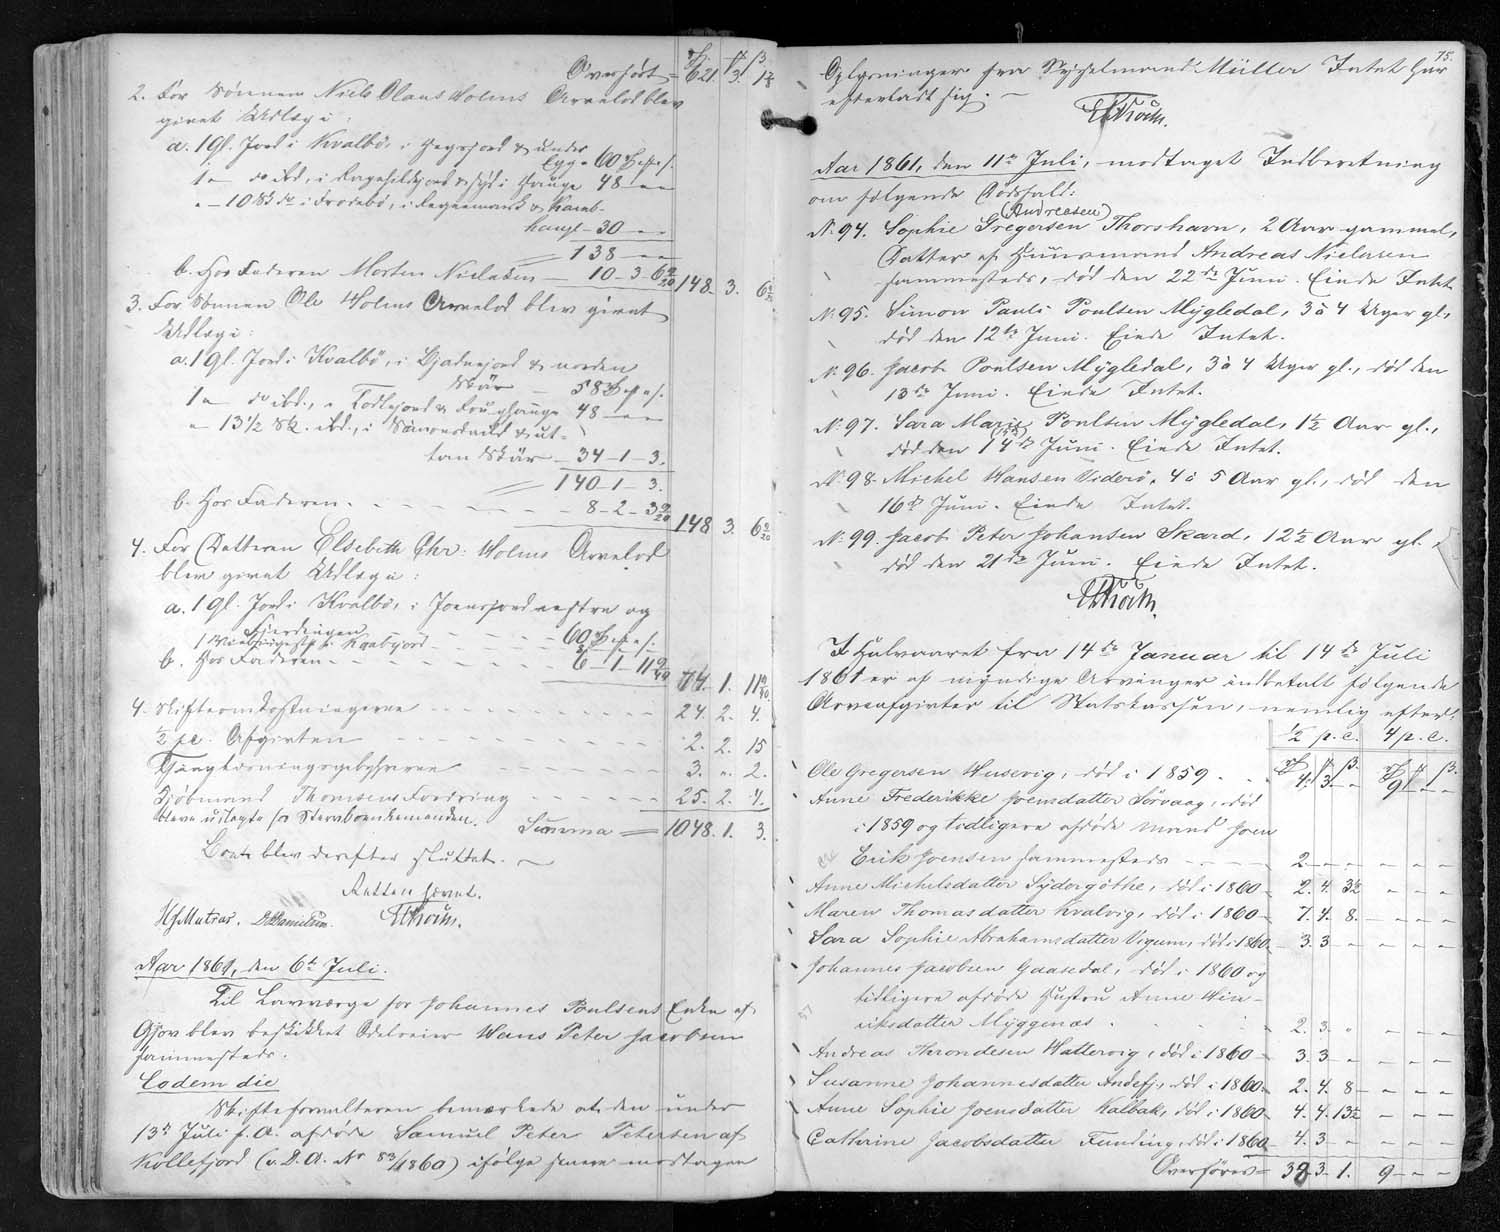 Overført = 621. 3. 1
2. For Sønnen Niels Olaus Holms Arvelod blev
givet Udlæg i:
a. 1 Gl. Jord i Kvalbö, i & under
Egg - 60
1 - do ibd., i & Syd i Hauge 48 - -
" - 10 Sk do i Frodebö, i & Kamb-
hauge - 30 - -
138 - -
b. Hos Faderen Morten Nielsen - 10 - 3 - 6 9/20 148. 3. 6 9/20
3. For Sønnen Ole Holms Arvelod blev givet
Udlæg i:
a. 1 Gl. Jord i Kvalbö, i & norden
Skär - 58
1 - do ibd., i & 48 - -
" - 13 1/2 Sk. ibd., i & ut-
tan Skär - 34 - 1 - 3.
140 - 1 - 3.
b. Hos Faderen - 8 - 2 - 3 9/20 148. 3. 6 9/20
4. For Datteren Elsebeth Chr: Holms Arvelod
blev givet Udlæg i:
a. 1 Gl. Jord i Kvalbö, i vestre og
60
b. Hos Faderen - 6 - 1 - 11 74. 1. 11
4. Skifteomkostningerne - 24. 2. 4.
1/2 pc. Afgivten - 2. 2. 15
Tinglæsningsgebyhrerne 3. " 2.
Kjøbmand Thomsens Fordring - 25. 2. 4.
bleve udlagte for Stervboenkemanden. Summa = 1048. 1. 3.
Boet blev derefter sluttet. -
Retten hævet.
HJMatras. DDanielsen.
Aar 1861, den 6te Juli.
Til Laugværge for Johannes Poulsens Enke af
Gjov blev beskikket Odelseier Hans Peter Jacobsen
sammesteds.
Eodem die
Skifteforvalteren bemærkede at den under
13de Juli f. A. afdøde Samuel Peter Petersen af
Kollefjord (v. D. A. No 83/1860) ifølge senere modtagen
75.
Oplysninger fra Sysselmand Müller Intet har
efterladt sig. -
Aar 1861, den 11te Juli, modtaget Indberetning
om følgende Dødsfald:
No. 94. Sophie Gregersen (Andreasen) Thorshavn, 2 Aar gammel,
Datter af Huusmand Andreas Nielsen
sammesteds, død den 22de Juni. Eiede Intet
No. 95. Simon Pauli Poulsen Mygledal, 3 à 4 Uger gl.,
død den 12te Juni. Eiede Intet.
No. 96. Jacob Poulsen Mygledal, 3 à 4 Uger gl., død den
13de Juni. Eiede Intet.
No. 97. Sara Marie Poulsen Mygledal, 1 1/2 Aar gl.,
død den 14de Juni. Eiede Intet.
No. 98. Michel Hansen Viderö, 4 à 5 Aar gl., død den
16de Juni. Eiede Intet.
No. 99. Jacob Peter Johansen Skard, 12 1/2 Aar gl.,
død den 21de Juni. Eiede Intet.
I Halvaaret fra 14de Januar til 14de Juli
1861 er af myndige Arvinger indbetalt følgende
Arveafgivter til Statskassen, nemlig efter:
1/2 p. c. 4 p. c.
Ole Gregersen Husevig, død i 1859 - 4. 3. - 9 - -
Anne Frederikke Joensdatter Sørvaag, død
i 1859 og tidligere afdøde Mand Joen
Erik Joensen sammesteds - 2 - - - - -
Anne Michelsdatter Sydergøthe, død i 1860 - 2. 4. 3 1/2 - - -
Maren Thomasdatter Kvalvig, død i 1860 - 7. 4. 8. - - -
Sara Sophie Abrahamsdatter Vigum, død i 1860 - 3. 3 - - - -
Johannes Jacobsen Gaasedal, død i 1860 og
tidligere afdøde Hustru Anne Hin-
riksdatter Myggenæs. 2. 3. " - - -
Andreas Throndesen Hattervig, død i 1860 - 3. 3 - - - -
Susanne Johannesdatter Andefj., død i 1860. 2. 4. 8 - - -
Anne Sophie Joensdatter Kalbak, død i 1860 4. 4. 13 1/2 - - -
Cathrine Jacobsdatter Funding, død i 1860 4. 3 - - - -
Overføres = 38 - 3 - 1. 9 - -